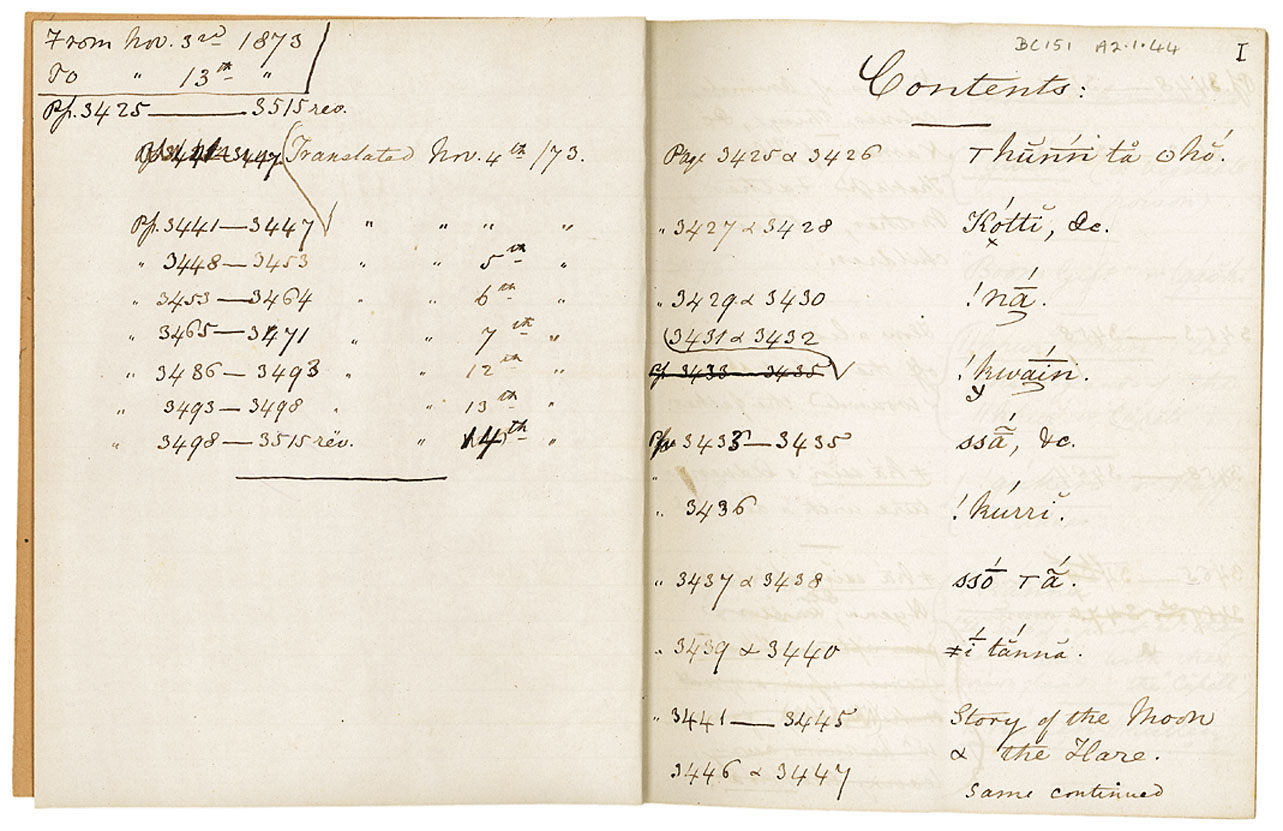 From Nov. 3rd 1873
To " 13th "
Pp. 3425 — 3515 rev.
Translated Nov. 4th /73.
Pp. 3441 — 3447 " " " "
" 3448 — 3453 " " 5th "
" 3453 — 3464 " " 6th "
" 3465 — 3471 " " 7th "
" 3486 — 3493 " " 12th "
" 3493 — 3498 " " 13th "
" 3498 — 3515 rev. " 14th "
BC151 A2.1.44 I
Contents:
Page 3425 & 3426
" 3427 & 3428 Kóttĭ, &c.
" 3429 & 3430 !nā́.
3431 & 3432
Pp 3433 — 3435 !kwāín.
Pp 3433 — 3435 ssā̃́, &c.
" 3436 !kúrrĭ.
" 3437 & 3438
" 3439 & 3440 ≠ī́ tắnnă.
" 3441 — 3445 Story of the Moon
& the Hare.
3446 & 3447 Same continued